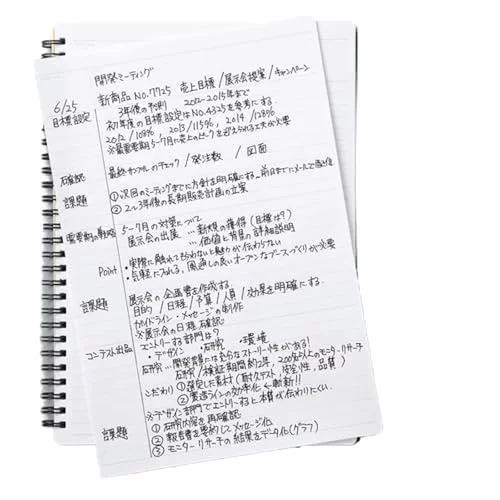 開発ミーティング
6/25 新商品 No.7725 売上目標/展示会提案/キャンペーン
目標設定 3年後の予測 2012-2015年まで
初年度の目標設定はNo.4325を参考にする。
2012/108%, 2013/115%, 2014/128%
※最重要期 5-7月に売上のピークを迎えられる工夫が必要
確認 最終サンプルのチェック/発注数/図面
課題 ①次回のミーティングまでに方針を明確にする。前日までにメールで送信
②2〜3年後の長期販売計画の立案
重要期の戦略 5-7月の対策について
展示会の出展 …新規の獲得(目標は?)
…価値と背景の詳細説明
Point ・実際に触れて もらわないと魅力が伝わらない
・気軽に入れる、風通しの良いオープンなブースづくりが必要
課題 展示会の企画書を作成する。
目的/日程/予算/人員/効果を明確にする。
ガイドライン・メッセージの制作
※展示会の日程 確認
コンテスト出品 エントリーする部門は?
・デザイン ・研究 ・環境
研究…開発背景には充分なストーリー性がある!
研究/検証期間約2年、200名の モニターリサーチ
こだわり ①選定した素材(耐久テスト, 安全性, 品質)
②製造ラインの効率化 ← 斬新!!
※デザイン部門でエントリーすると本質が伝わりにくい。
課題 ①研究内容を再確認
②報告書を要約してメッセージ化
③モニターリサーチの結果をデータ化(グラフ)